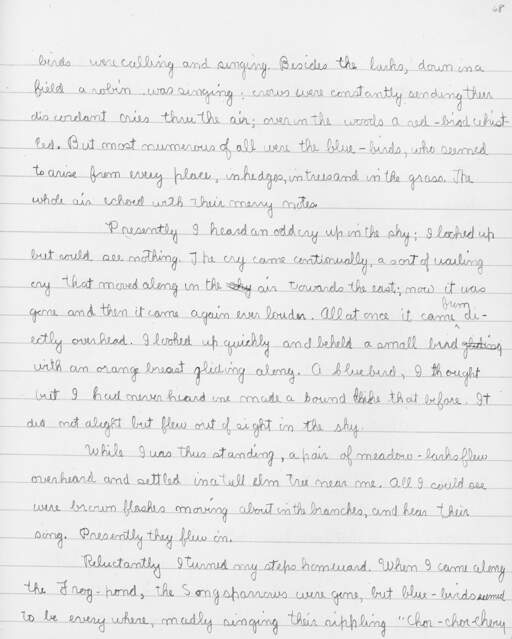 68
birds were calling and singing. Besides the larks, down in a
field a robin was singing; crows were constantly sending their
discordant cries thru the air; over in the woods a red-bird whist-
led. But most numerous of all were the blue-birds, who seemed
to arise from every place, in hedges, in trees and in the grass. The
whole air echoed with their merry notes.
Presently I heard an odd cry up in the sky; I looked up
but could see nothing. The cry came continually, a sort of wailing
cry that moved along in the sky air towards the east; now it was
gone and then it came again ever louder. All at once it came from di-
ectly overhead. I looked up quickly and beheld a small bird
with an orange breast gliding along. A bluebird, I thought
but I had never heard one made a sound like that before. It
did not alight but flew out of sight in the sky.
While I was thus standing, a pair of meadow-larks flew
overheard and settled in a tall elm tree near me. All I could see
were brown flashes moving about in the branches, and hear their
song. Presently they flew on.
Reluctantly I turned my steps homeward. When I came along
the Frog-pond, the Song sparrows were gone, but blue-birds seemed
to be every where, madly singing their rippling "Chor-chor-chery